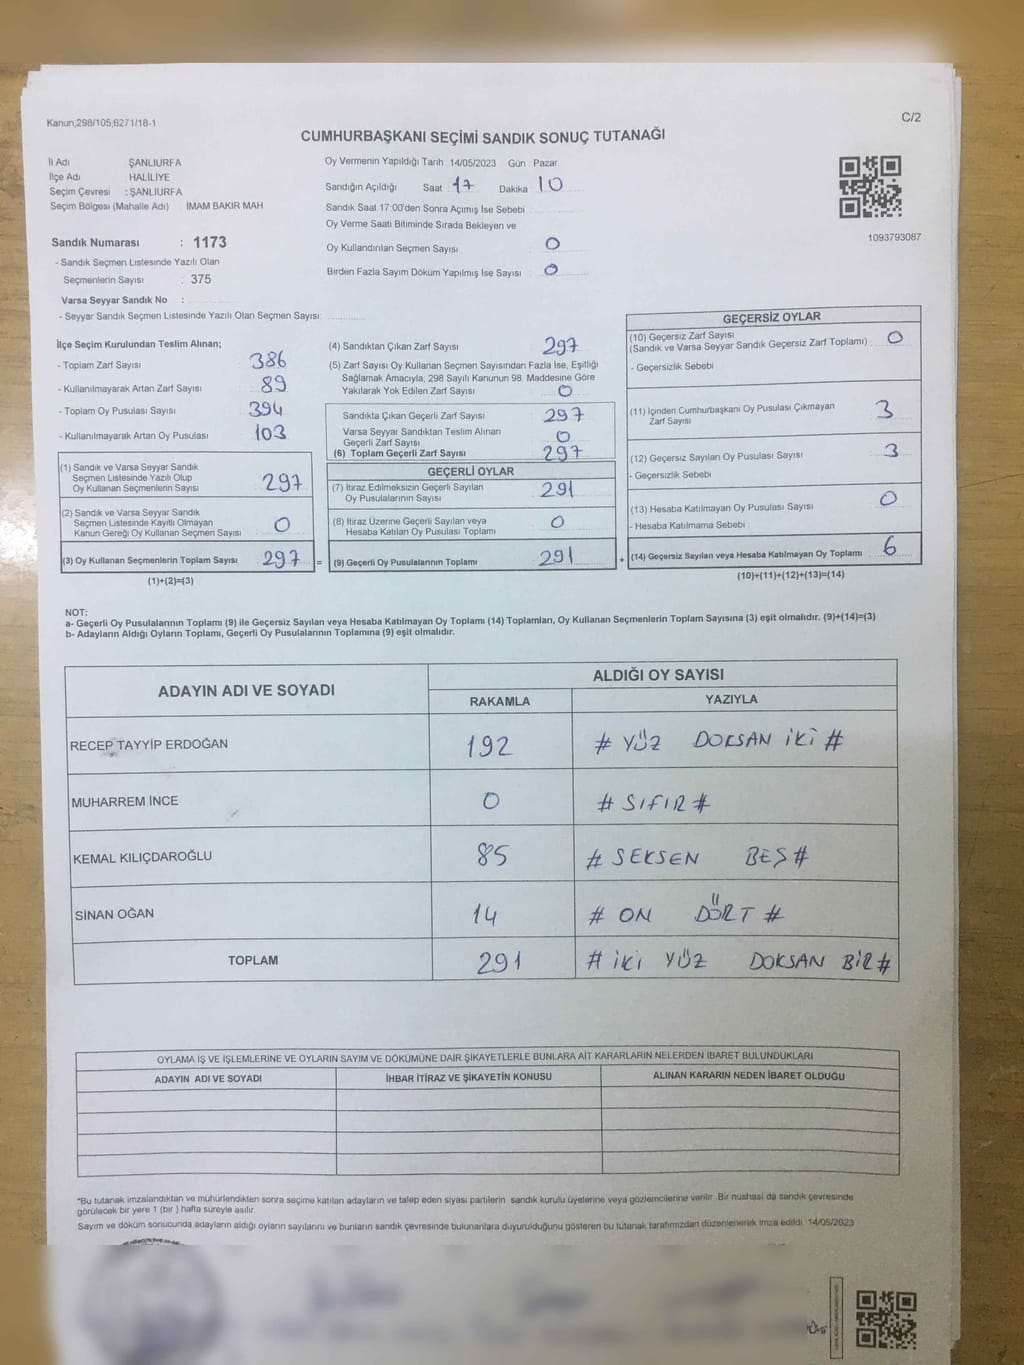 Kanun;298/105;6271/18-1
C/2
CUMHURBAŞKANI SEÇİMİ SANDIK SONUÇ TUTANAĞI
İl Adı ŞANLIURFA
İlçe Adı HALİLİYE
Seçim Çevresi : ŞANLIURFA
Seçim Bölgesi (Mahalle Adı) İMAM BAKIR MAH
Sandık Numarası : 1173
- Sandık Seçmen Listesinde Yazılı Olan
Seçmenlerin Sayısı : 375
Varsa Seyyar Sandık No :
- Seyyar Sandık Seçmen Listesinde Yazılı Olan Seçmen Sayısı:
Oy Vermenin Yapıldığı Tarih 14/05/2023 Gün Pazar
Sandığın Açıldığı Saat 17 Dakika 10
Sandık Saat 17:00'den Sonra Açımış İse Sebebi
Oy Verme Saati Bitiminde Sırada Bekleyen ve
Oy Kullandırılan Seçmen Sayısı 0
Birden Fazla Sayım Döküm Yapılmış İse Sayısı 0
1093793087
İlçe Seçim Kurulundan Teslim Alınan;
- Toplam Zarf Sayısı 386
- Kullanılmayarak Artan Zarf Sayısı 89
- Toplam Oy Pusulası Sayısı 394
- Kullanılmayarak Artan Oy Pusulası 103
(1) Sandık ve Varsa Seyyar Sandık
Seçmen Listesinde Yazılı Olup
Oy Kullanan Seçmenlerin Sayısı 297
(2) Sandık ve Varsa Seyyar Sandık
Seçmen Listesinde Kayıtlı Olmayan
Kanun Gereği Oy Kullanan Seçmen Sayısı 0
(3) Oy Kullanan Seçmenlerin Toplam Sayısı 297 =
(1)+(2)=(3)
(4) Sandıktan Çıkan Zarf Sayısı 297
(5) Zarf Sayısı Oy Kullanan Seçmen Sayısından Fazla İse, Eşitliği
Sağlamak Amacıyla, 298 Sayılı Kanunun 98. Maddesine Göre
Yakılarak Yok Edilen Zarf Sayısı 0
Sandıkta Çıkan Geçerli Zarf Sayısı 297
Varsa Seyyar Sandıktan Teslim Alınan
Geçerli Zarf Sayısı 0
(6) Toplam Geçerli Zarf Sayısı 297
GEÇERLİ OYLAR
(7) İtiraz Edilmeksizin Geçerli Sayılan
Oy Pusulalarının Sayısı 291
(8) İtiraz Üzerine Geçerli Sayılan veya
Hesaba Katılan Oy Pusulası Toplamı 0
(9) Geçerli Oy Pusulalarının Toplamı 291 +
GEÇERSİZ OYLAR
(10) Geçersiz Zarf Sayısı
(Sandık ve Varsa Seyyar Sandık Geçersiz Zarf Toplamı) : 0
- Geçersizlik Sebebi
(11) İçinden Cumhurbaşkanı Oy Pusulası Çıkmayan
Zarf Sayısı 3
(12) Geçersiz Sayılan Oy Pusulası Sayısı 3
- Geçersizlik Sebebi
(13) Hesaba Katılmayan Oy Pusulası Sayısı 0
- Hesaba Katılmama Sebebi
(14) Geçersiz Sayılan veya Hesaba Katılmayan Oy Toplamı 6
(10)+(11)+(12)+(13)=(14)
NOT:
a- Geçerli Oy Pusulalarının Toplamı (9) ile Geçersiz Sayılan veya Hesaba Katılmayan Oy Toplamı (14) Toplamları, Oy Kullanan Seçmenlerin Toplam Sayısına (3) eşit olmalıdır. (9)+(14)=(3)
b- Adayların Aldığı Oyların Toplamı, Geçerli Oy Pusulalarının Toplamına (9) eşit olmalıdır.
ADAYIN ADI VE SOYADI
ALDIĞI OY SAYISI
RAKAMLA YAZIYLA
RECEP TAYYİP ERDOĞAN 192 # YÜZ DOKSAN İKİ #
MUHARREM İNCE 0 # SIFIR #
KEMAL KILIÇDAROĞLU 85 # SEKSEN BEŞ #
SİNAN OĞAN 14 # ON DÖRT #
TOPLAM 291 # İKİ YÜZ DOKSAN BİR #
OYLAMA İŞ VE İŞLEMLERİNE VE OYLARIN SAYIM VE DÖKÜMÜNE DAİR ŞİKAYETLERLE BUNLARA AİT KARARLARIN NELERDEN İBARET BULUNDUKLARI
ADAYIN ADI VE SOYADI İHBAR İTİRAZ VE ŞİKAYETİN KONUSU ALINAN KARARIN NEDEN İBARET OLDUĞU
*Bu tutanak imzalandıktan ve mühürlendikten sonra seçime katılan adayların ve talep eden siyasi partilerin sandık kurulu üyelerine veya gözlemcilerine verilir. Bir nüshası da sandık çevresinde
görülecek bir yere 1 (bir ) hafta süreyle asılır.
Sayım ve döküm sonucunda adayların aldığı oyların sayılarını ve bunların sandık çevresinde bulunanlara duyurulduğunu gösteren bu tutanak tarafımızdan düzenlenerek imza edildi. 14/05/2023